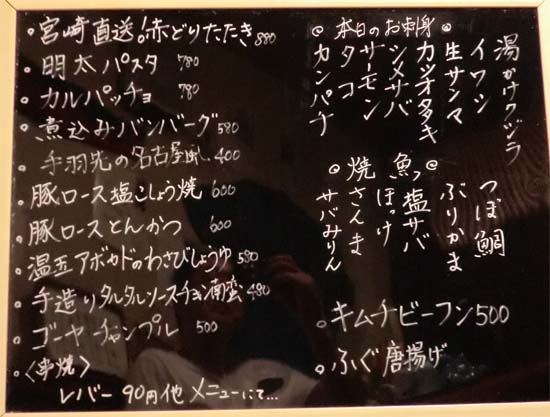 ・宮崎直送!赤どりたたき 880
・明太パスタ 780
・カルパッチョ 780
・煮込みバンバーグ 580
・手羽先の名古屋風 400
・豚ロース塩こしょう焼 600
・豚ロースとんかつ 600
・温玉アボカドのわさびじょうゆ 580
・手造りタルタルソースチキン南蛮 480
・ゴーヤーチャンプル 500
・〈串焼〉
レバー 90円他 メニューにて…
◎本日のお刺身◎
湯かけクジラ
イワシ
生サンマ
カツオタタキ
シメサバ
サーモン
タコ
カンパチ
◎魚っ◎
つぼ鯛
ぶりかま
塩サバ
ほっけ
焼さんま
サバみりん
・キムチビーフン500
・ふぐ唐揚げ